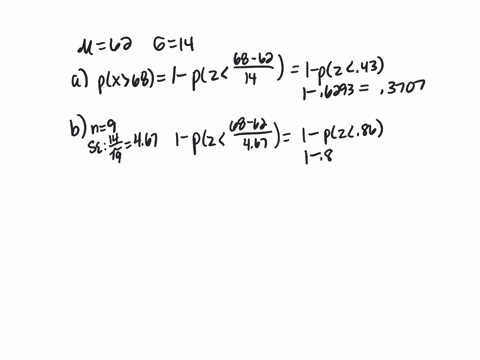 μ=62 σ=14
a) p(x>68)=1-p(z<(68-62)/14)=1-p(z<.43)
1-.6293= .3707
b) n=9
SE:14/√9=4.67 1-p(z<(68-62)/4.67)=1-p(z<.86)
1-.8